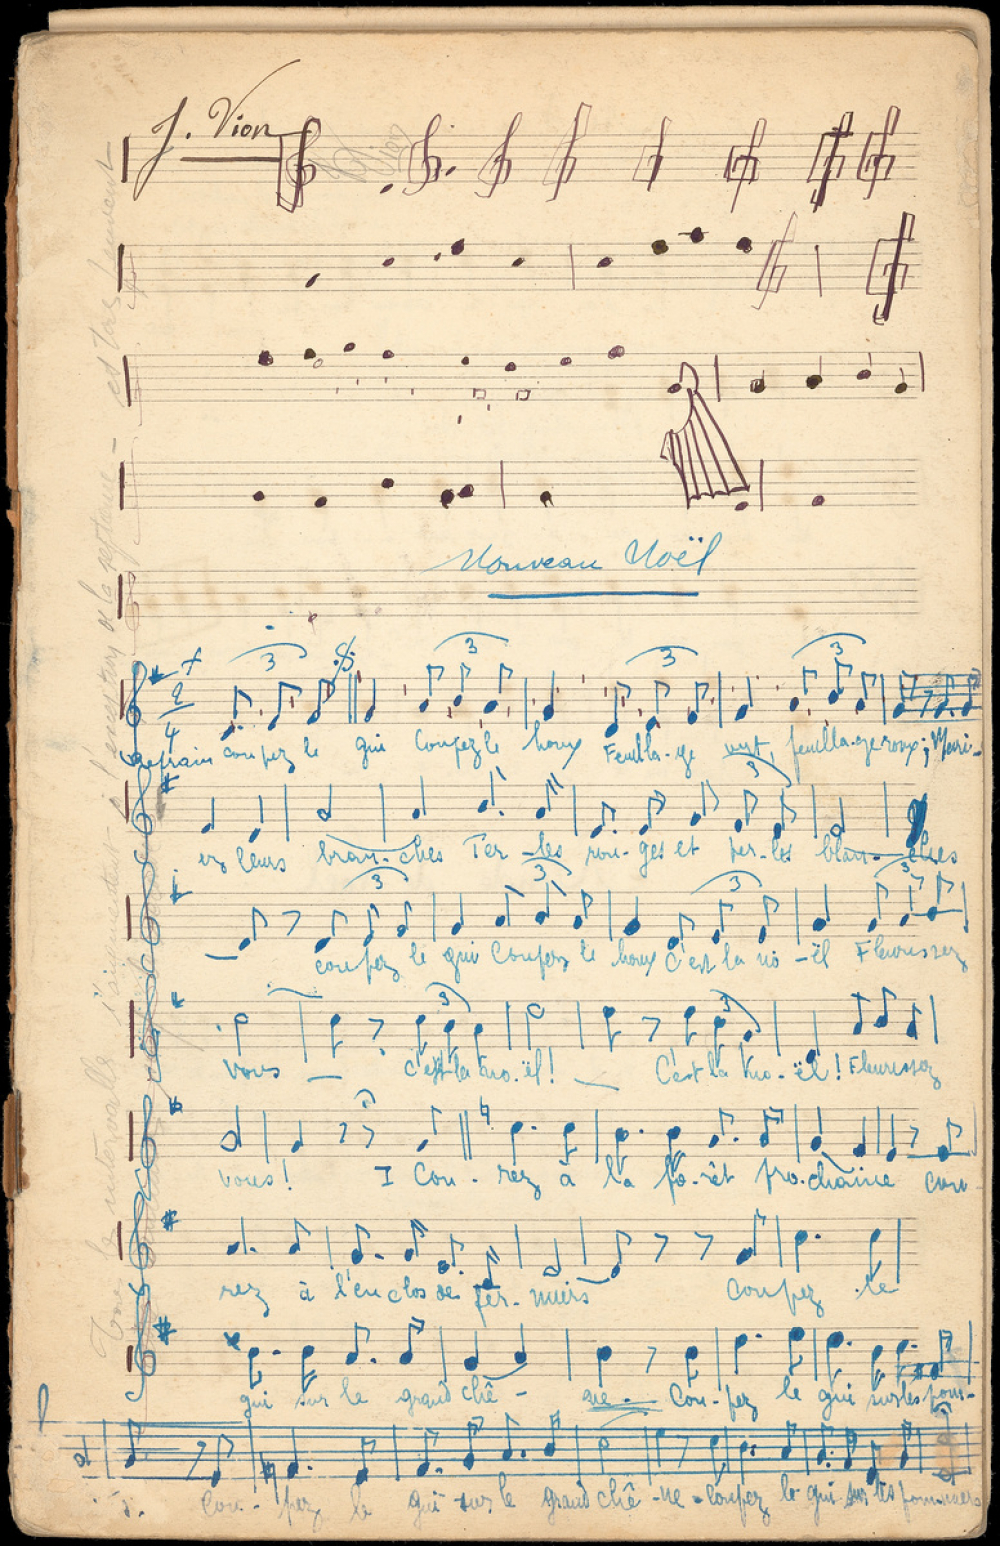 J. Vion
Vion
Nouveau Noël
3 3 3 3
2
4
Refrain coupez le gui Coupez le houx Feuilla-ge vert, feuilla-ge roux; Fleuri-
3
ez leurs bran-ches Per-les rou-ges et per-les blan-ches
3 3 3 3
coupez le gui Coupez le houx C'est la no-ël Fleurissez
3 3
vous c'est la no-ël! C'est la No-ël! Fleurissez
vous! I Cou-rez à la fo-rêt pro-chaine cou-
rez à l'enclos des fer-miers coupez le
gui sur le grand chê-ne. Cou-pez le gui sur les pom-
Cou-pez le gui sur le grand chê-ne coupez le gui sur les pommiers